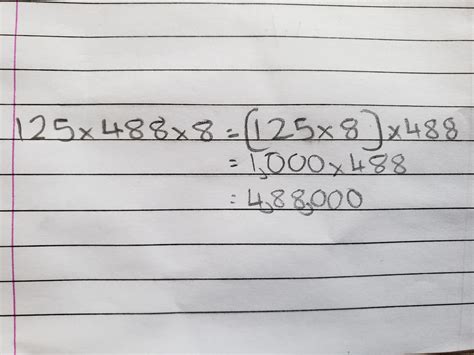 125×488×8 = (125×8)×488
= 1,000×488
= 4,88,000